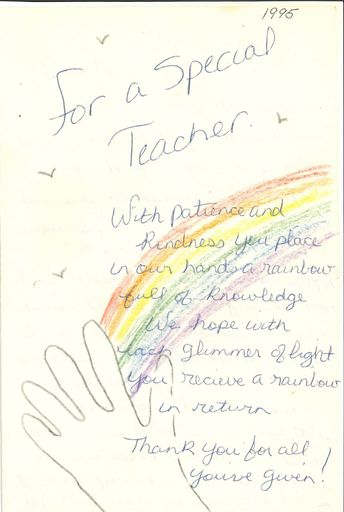 1995
For a Special
Teacher.
With patience and
kindness you place
in our hands a rainbow
full of knowledge
We hope with
each glimmer of light
you recieve a rainbow
in return
Thank you for all
youve given!